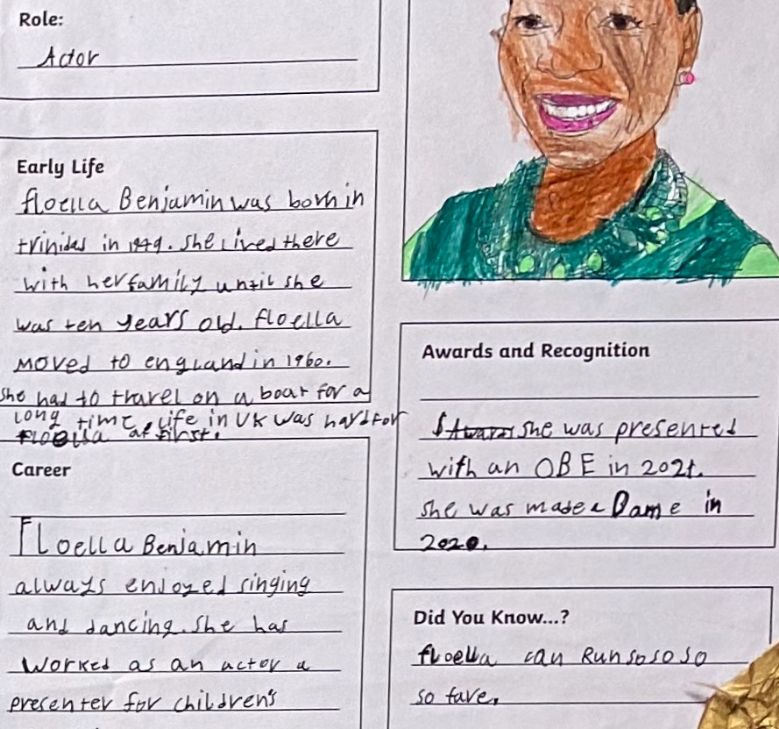 Role:
Actor
Early Life
floella Benjamin was born in
trinidad in 1949. She lived there
with her family until she
was ten years old. floella
moved to england in 1960.
she had to travel on a boat for a
long time. Life in UK was hard for
floella at first.
Career
Floella Benjamin
always enjoyed singing
and dancing. She has
worked as an actor a
presenter for children's
Awards and Recognition
she was presented
with an OBE in 2021.
she was made a Dame in
2020.
Did You Know...?
floella can Run so so so
so fare.